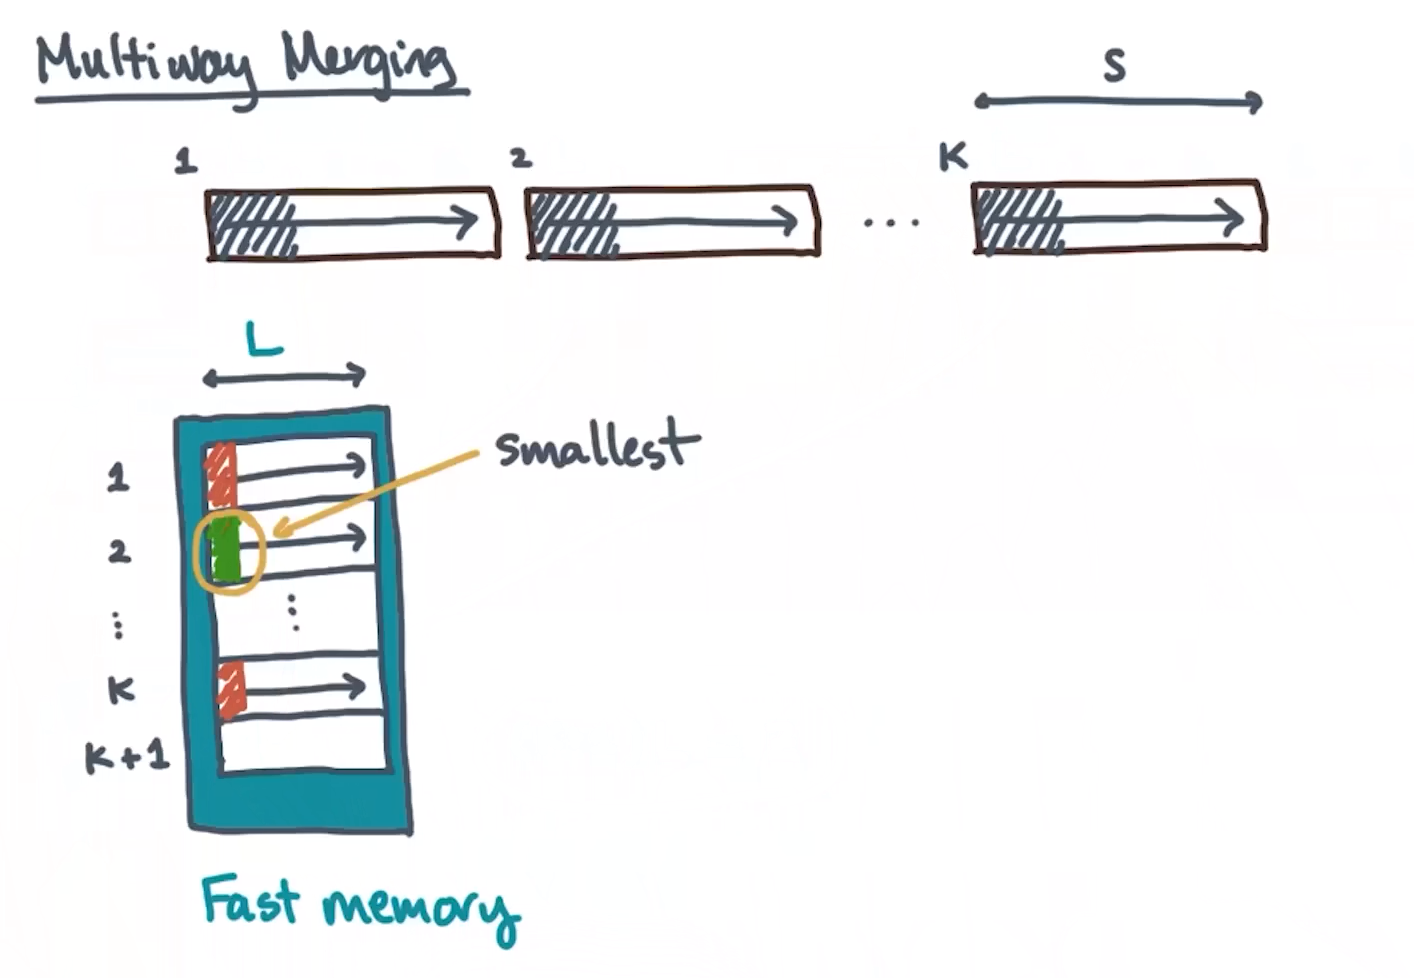 Multiway Merging
S
1 2 ... K
L
smallest
1
2
⋮
K
K+1
Fast memory